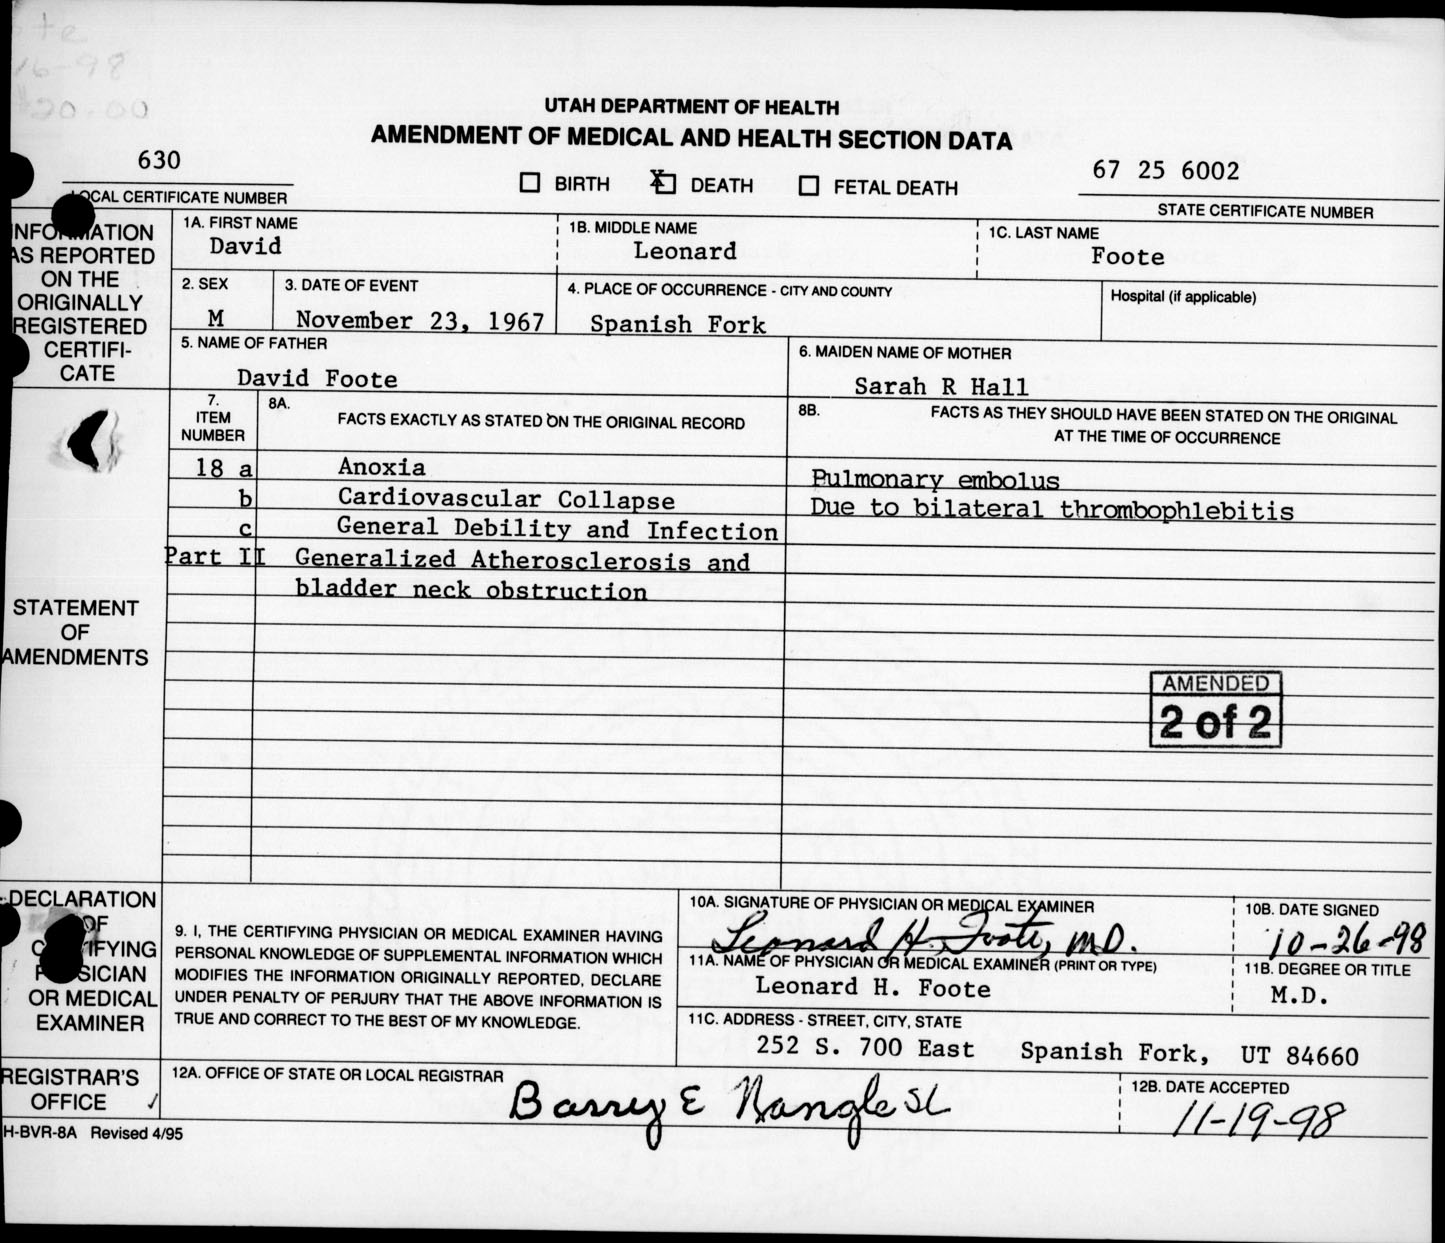 16-98
$20.00
UTAH DEPARTMENT OF HEALTH
AMENDMENT OF MEDICAL AND HEALTH SECTION DATA
630
LOCAL CERTIFICATE NUMBER
BIRTH X DEATH FETAL DEATH
67 25 6002
STATE CERTIFICATE NUMBER
INFORMATION
AS REPORTED
ON THE
ORIGINALLY
REGISTERED
CERTIFI-
CATE
1A. FIRST NAME
David
1B. MIDDLE NAME
Leonard
1C. LAST NAME
Foote
2. SEX
M
3. DATE OF EVENT
November 23, 1967
4. PLACE OF OCCURRENCE - CITY AND COUNTY
Spanish Fork
Hospital (if applicable)
5. NAME OF FATHER
David Foote
6. MAIDEN NAME OF MOTHER
Sarah R Hall
STATEMENT
OF
AMENDMENTS
7.
ITEM
NUMBER
8A.
FACTS EXACTLY AS STATED ON THE ORIGINAL RECORD
8B. FACTS AS THEY SHOULD HAVE BEEN STATED ON THE ORIGINAL
AT THE TIME OF OCCURRENCE
18 a Anoxia Pulmonary embolus
b Cardiovascular Collapse Due to bilateral thrombophlebitis
c General Debility and Infection
Part II Generalized Atherosclerosis and
bladder neck obstruction
AMENDED
2 of 2
DECLARATION
OF
CERTIFYING
PHYSICIAN
OR MEDICAL
EXAMINER
9. I, THE CERTIFYING PHYSICIAN OR MEDICAL EXAMINER HAVING
PERSONAL KNOWLEDGE OF SUPPLEMENTAL INFORMATION WHICH
MODIFIES THE INFORMATION ORIGINALLY REPORTED, DECLARE
UNDER PENALTY OF PERJURY THAT THE ABOVE INFORMATION IS
TRUE AND CORRECT TO THE BEST OF MY KNOWLEDGE.
10A. SIGNATURE OF PHYSICIAN OR MEDICAL EXAMINER
Leonard H. Foote, M.D.
10B. DATE SIGNED
10-26-98
11A. NAME OF PHYSICIAN OR MEDICAL EXAMINER (PRINT OR TYPE)
Leonard H. Foote
11B. DEGREE OR TITLE
M.D.
11C. ADDRESS - STREET, CITY, STATE
252 S. 700 East Spanish Fork, UT 84660
REGISTRAR'S
OFFICE ✓
12A. OFFICE OF STATE OR LOCAL REGISTRAR
Barry E Nangle SL
12B. DATE ACCEPTED
11-19-98
H-BVR-8A Revised 4/95